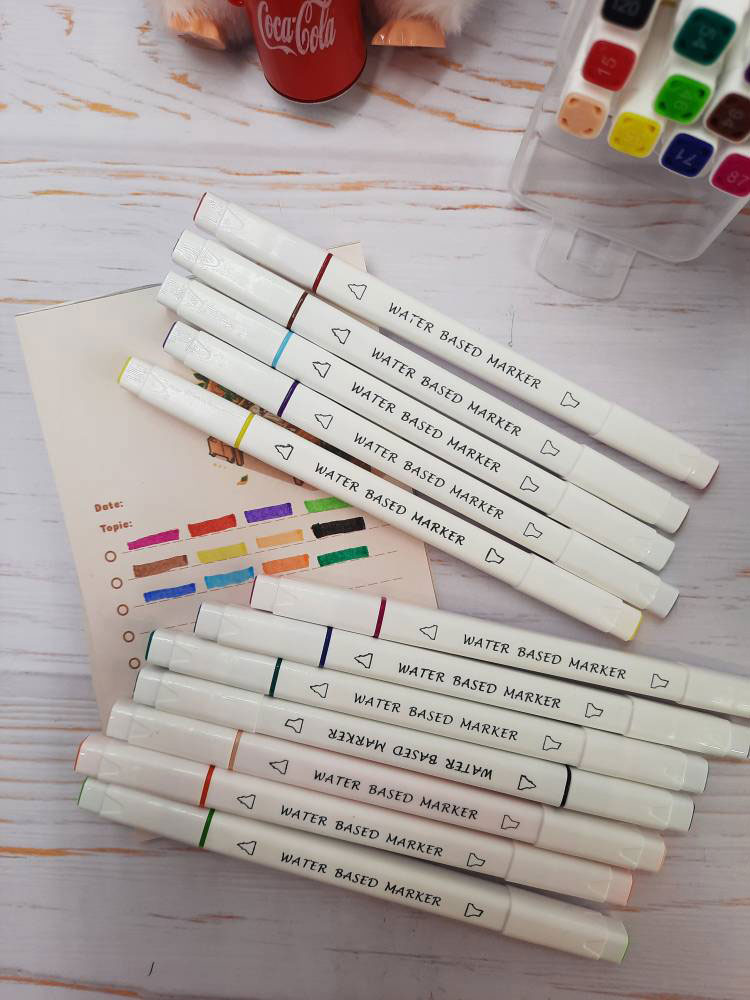 Coca-Cola
120
15
71
87
WATER BASED MARKER
WATER BASED MARKER
WATER BASED MARKER
WATER BASED MARKER
WATER BASED MARKER
Date:
Topic:
WATER BASED MARKER
WATER BASED MARKER
WATER BASED MARKER
WATER BASED MARKER
WATER BASED MARKER
WATER BASED MARKER
WATER BASED MARKER